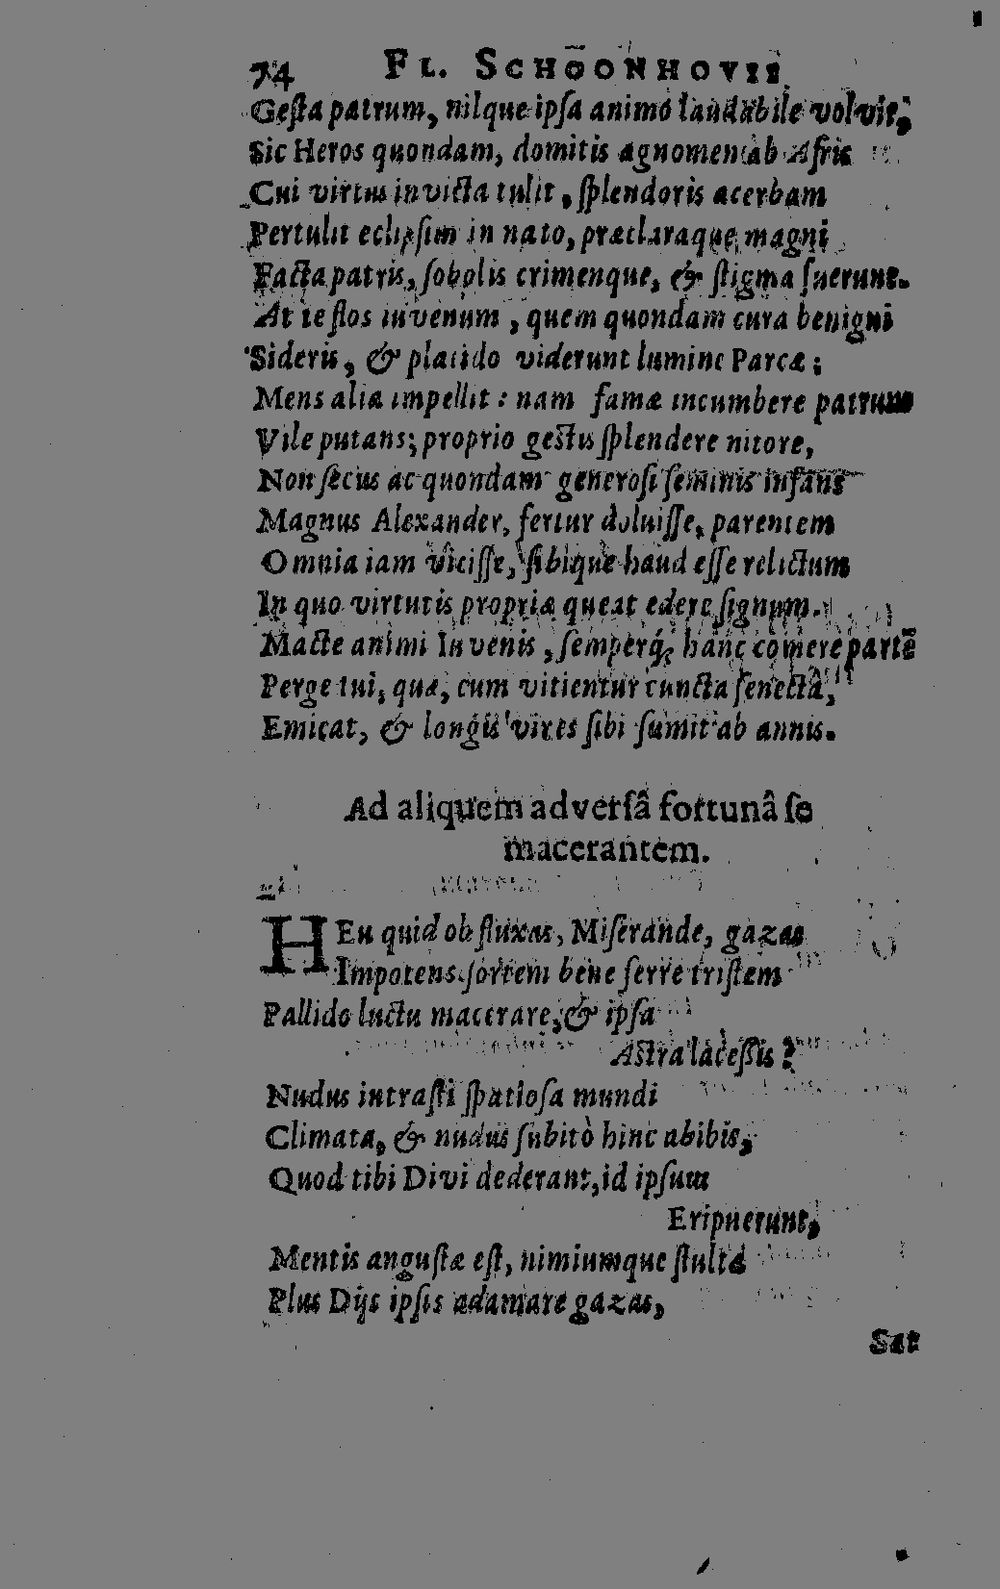 74 FL. SCHOONHOVII
Gesta patrum, nilque ipsa animo laudabile volvit,
Sic Heros quondam, domitis agnomen ab Afris
Cui virtus invicta tulit, splendoris acerbam
Pertulit eclipsim in nato, præclaraque magni
Facta patris, sobolis crimenque, & stigma fuerunt.
At te flos iuvenum, quem quondam cura benigni
Sideris, & placido viderunt lumine Parcæ;
Mens alia impellit: nam famæ incumbere patrum
Vile putans; proprio gestis splendere nitore,
Non secus ac quondam generosi seminis infans
Magnus Alexander, fertur doluisse, parentem
Omnia iam vicisse, sibique haud esse relictum
In quo virtutis propriæ queat edere signum.
Macte animi Iuvenis, semperq́; hanc comere partē
Perge tui, quæ, cum vitientur cuncta senectâ,
Emicat, & longis vires sibi sumit ab annis.
Ad aliquem adversâ fortunâ se
macerantem.
HEu quid ob fluxas, Miserande, gazas
Impotens sortem bene ferre tristem
Pallido luctu macerare, & ipsa
Astra lacessis?
Nudus intrasti spatiosa mundi
Climata, & nudus subitò hinc abibis,
Quod tibi Divi dederant, id ipsum
Eripuerunt,
Mentis angustæ est, nimiumque stultæ
Plus Dijs ipsis adamare gazas,
Sat